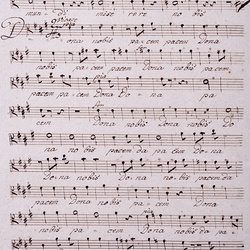 mun di misere re nobis
Dona nobis pacem pacem Dona
nobis pacem pacem Dona nobis pacem
pacem pacem Dona Do na pa
cem Dona nobis Dona nobis
na no bis pacem da pacem Dona
Dona nobis Dona nobis pacem da
pacem Dona nobis pa cem
nobis pa cem Dona nobis
pacem Dona nobis pa cem